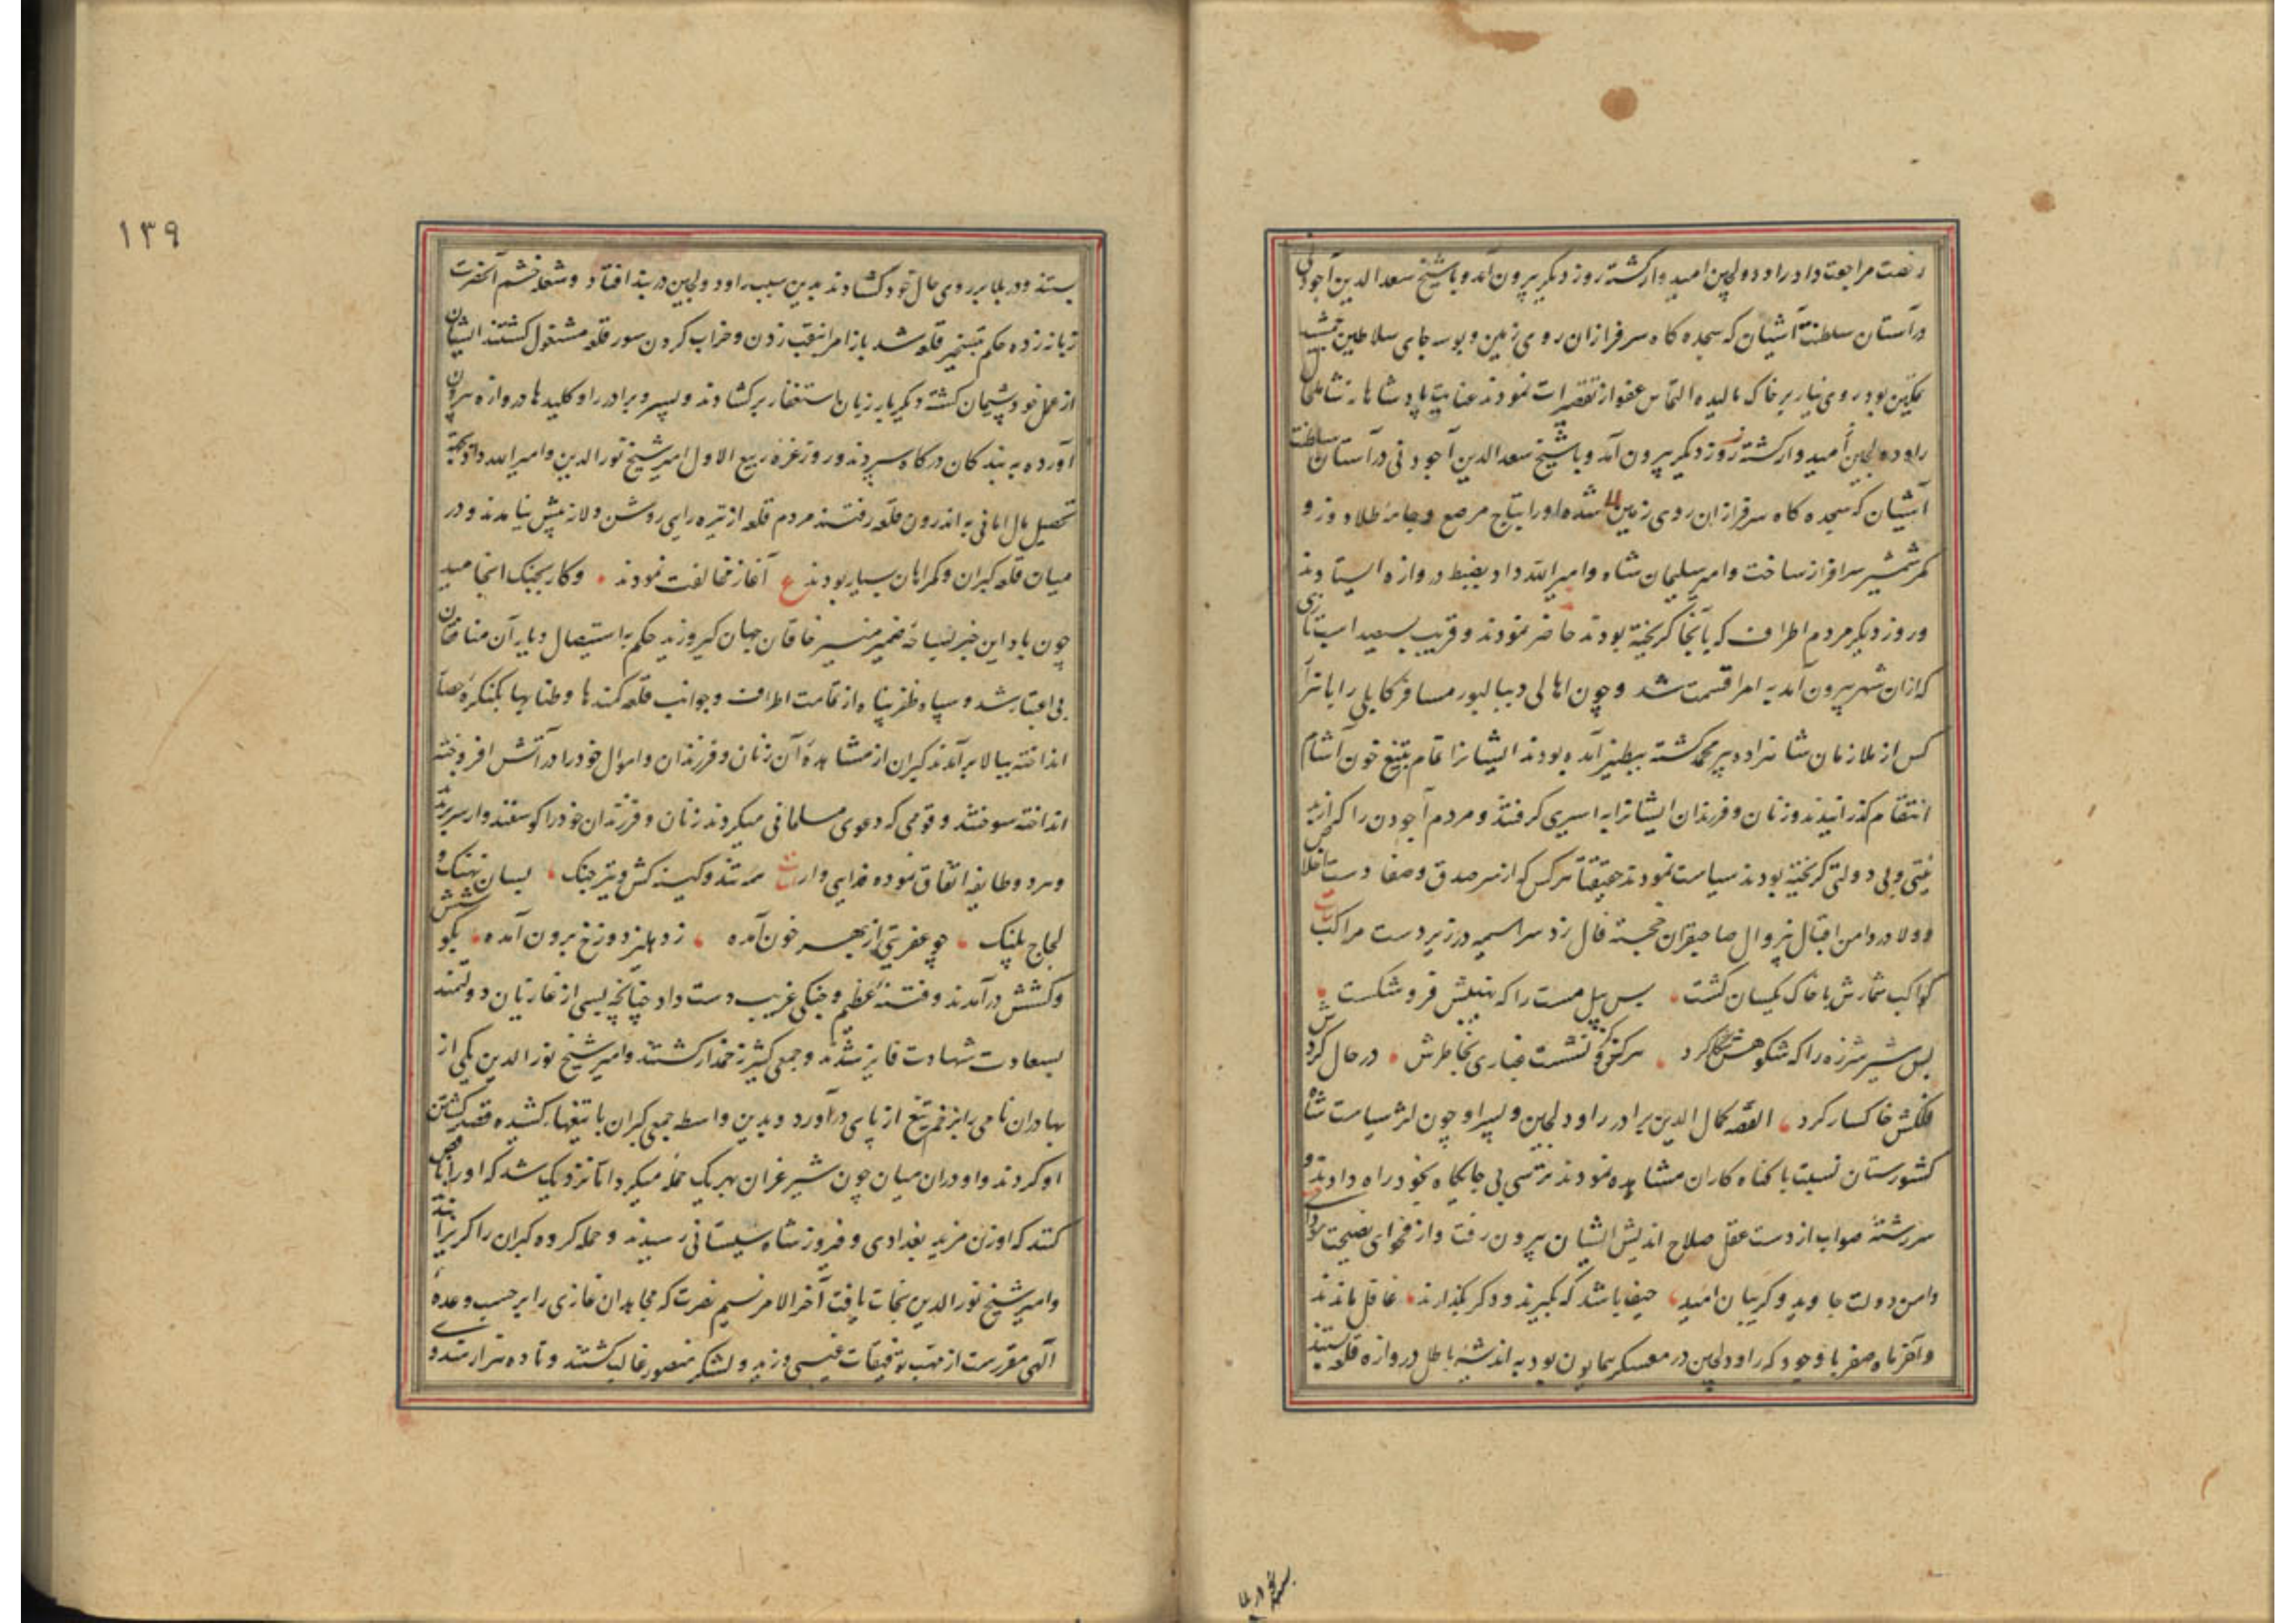 رخصت مراجعت داد راو دولچین امیدوار گشته روز دیگر بیرون آمد و با شیخ سعد الدین آجودنی
در آستان سلطنت آشیان که سجده کاه سرفرازان روی زمین و بوسه جای سلاطین
تمکین بود روی نیاز بر خاک مالیده التماس عفو از تقصیرات نمودند عنایت پادشاهانه شامل حال
راو دولجین امیدوار کشته روز دیگر بیرون آمد و با شیخ سعد الدین آجودنی در آستان سلطنت
آشیان که سجده کاه سرفرازان روی زمین شده او را بتاج مرصع و جامه طلادوز و
کمر شمشیر سرافراز ساخت و امیر سلیمان شاه و امیر الله داد بضبط دروازه ایستادند
و روز دیکر مردم اطراف که بآنجا کریخته بودند حاضر نمودند و قریب سیصد اسب تازی
که ازان شهر بیرون آمد به امرا قسمت شد و چون اهالی دیبالپور مسافر کابلی را با هزار
کس از ملازمان شاهزاده پیر محمد کشته بیطنیر آمده بودند ایشانرا تمام بتیغ خون آشام
انتقام کذرانیدند و زنان و فرزندان ایشانرا به اسیری کرفتند و مردم آجودن را که از بد
بختی و بی دولتی کریخته بودند سیاست نمودند حقیقتاً هرکس که از سر صدق و صفا دست اخلاص
و ولا در دامن اقبال بیزوال صاحبقران خجسته فال زد سر اسمیه در زیر دست مراکب
کواکب شمارش با خاک یکسان کشت بس پیل مست را که بنیبش فرو شکست
بس شیر شرزه را که شکوهش شکار کرد هر کز کزو نشست غباری بخاطرش در حال کردش
فلکش خاکسار کرد القصه کمال الدین برادر راو دلجین و پسر او چون اثر سیاست شاه
کشورستان نسبت با کناه کاران مشاهده نمودند ترسی بی جایکاه بخود راه دادند و
سررشته صواب از دست عقل صلاح اندیش ایشان بیرون رفت و از فحوای نصیحت مودای
دامن دولت جاوید و کریبان امید حیف باشد که بکیرند و دکر بکذارند غافل ماندند
و آخر ماه صفر با وجود که راو دلچین در معسکر همایون بود به اندیشه باطل دروازه قلعه بستند
۱۳۹
بستند و در بلا بر روی حال خود کشادند بدین سبب راو دولجین در بند افتاد و شعله خشم آنحضرت
زبانه زده حکم بتسخیر قلعه شد باز امرا بنقب زدن و خراب کردن سور قلعه مشغول کشتند ایشان
از عمل خود پشیمان کشته دیکر بار زبان باستغفار برکشادند و پسر و برادر راو کلیدها دروازه بیرون
آورده به بندکان درکاه سپردند و روز غره ربیع الاول امیر شیخ نور الدین و امیر الله داد بجهة
تحصیل مال امانی به اندرون قلعه رفتند مردم قلعه از تیره رایی روشن و لاز پیش نیامدند و در
میان قلعه کبران و کمراهان بسیار بودند ع آغاز مخالفت نمودند و کار بجنک انجامید
چون باد این خبر بساحه ضمیر منیر خاقان جهان کیر وزید حکم به استیصال دیار آن منافقان
بی اعتبار شد و سپاه ظفر پناه از تمامت اطراف و جوانب قلعه کمندها و طنابها بکنکره حصار
انداخته ببالا برآمدند کبران از مشاهده آن زنان و فرزندان و اموال خود را در آتش افروخته
انداخته سوختند و قومی که دعوی مسلمانی میکردند زنان و فرزندان خود را کوسفند وار سر بریدند
و هر دو طایفه اتفاق نموده فدایی وار ابیات همه تند و کینه کش و تیز جنک بسان نهنک و
لجاج پلنک چو عفریتی از بهر خون آمده ز دهلیز دوزخ برون آمده بکوشش
و کشش درآمدند و فتنه عظیم و جنکی غریب دست داد چنانچه بسی از غازیان دولتمند
بسعادت شهادت فایز شدند و جمعی کثیر زخمدار کشتند و امیر شیخ نور الدین یکی از
بهادران نامی را بزخم تیغ از پای درآورد و بدین واسطه جمعی کبران با تیغها کشیده قصد کشتن
او کردند و او دران میان چون شیر غران بهر یک حمله میکرد تا نزدیک شد که او را ناقص
کنند که اوزن مزید بغدادی و فیروز شاه سیستانی رسیدند و حمله کرده کبران را کریزانیدند
و امیر شیخ نور الدین نجات یافت آخر الامر نسیم نصرت که مجاهدان غازی را بر حسب وعده
آلهی مقررست از مهب توفیقات غیبی وزید و لشکر منصور غالب کشتند و تا ده هزار هندوی